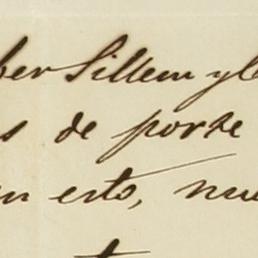 ber Sillem y C
s de porte
en esto, nue